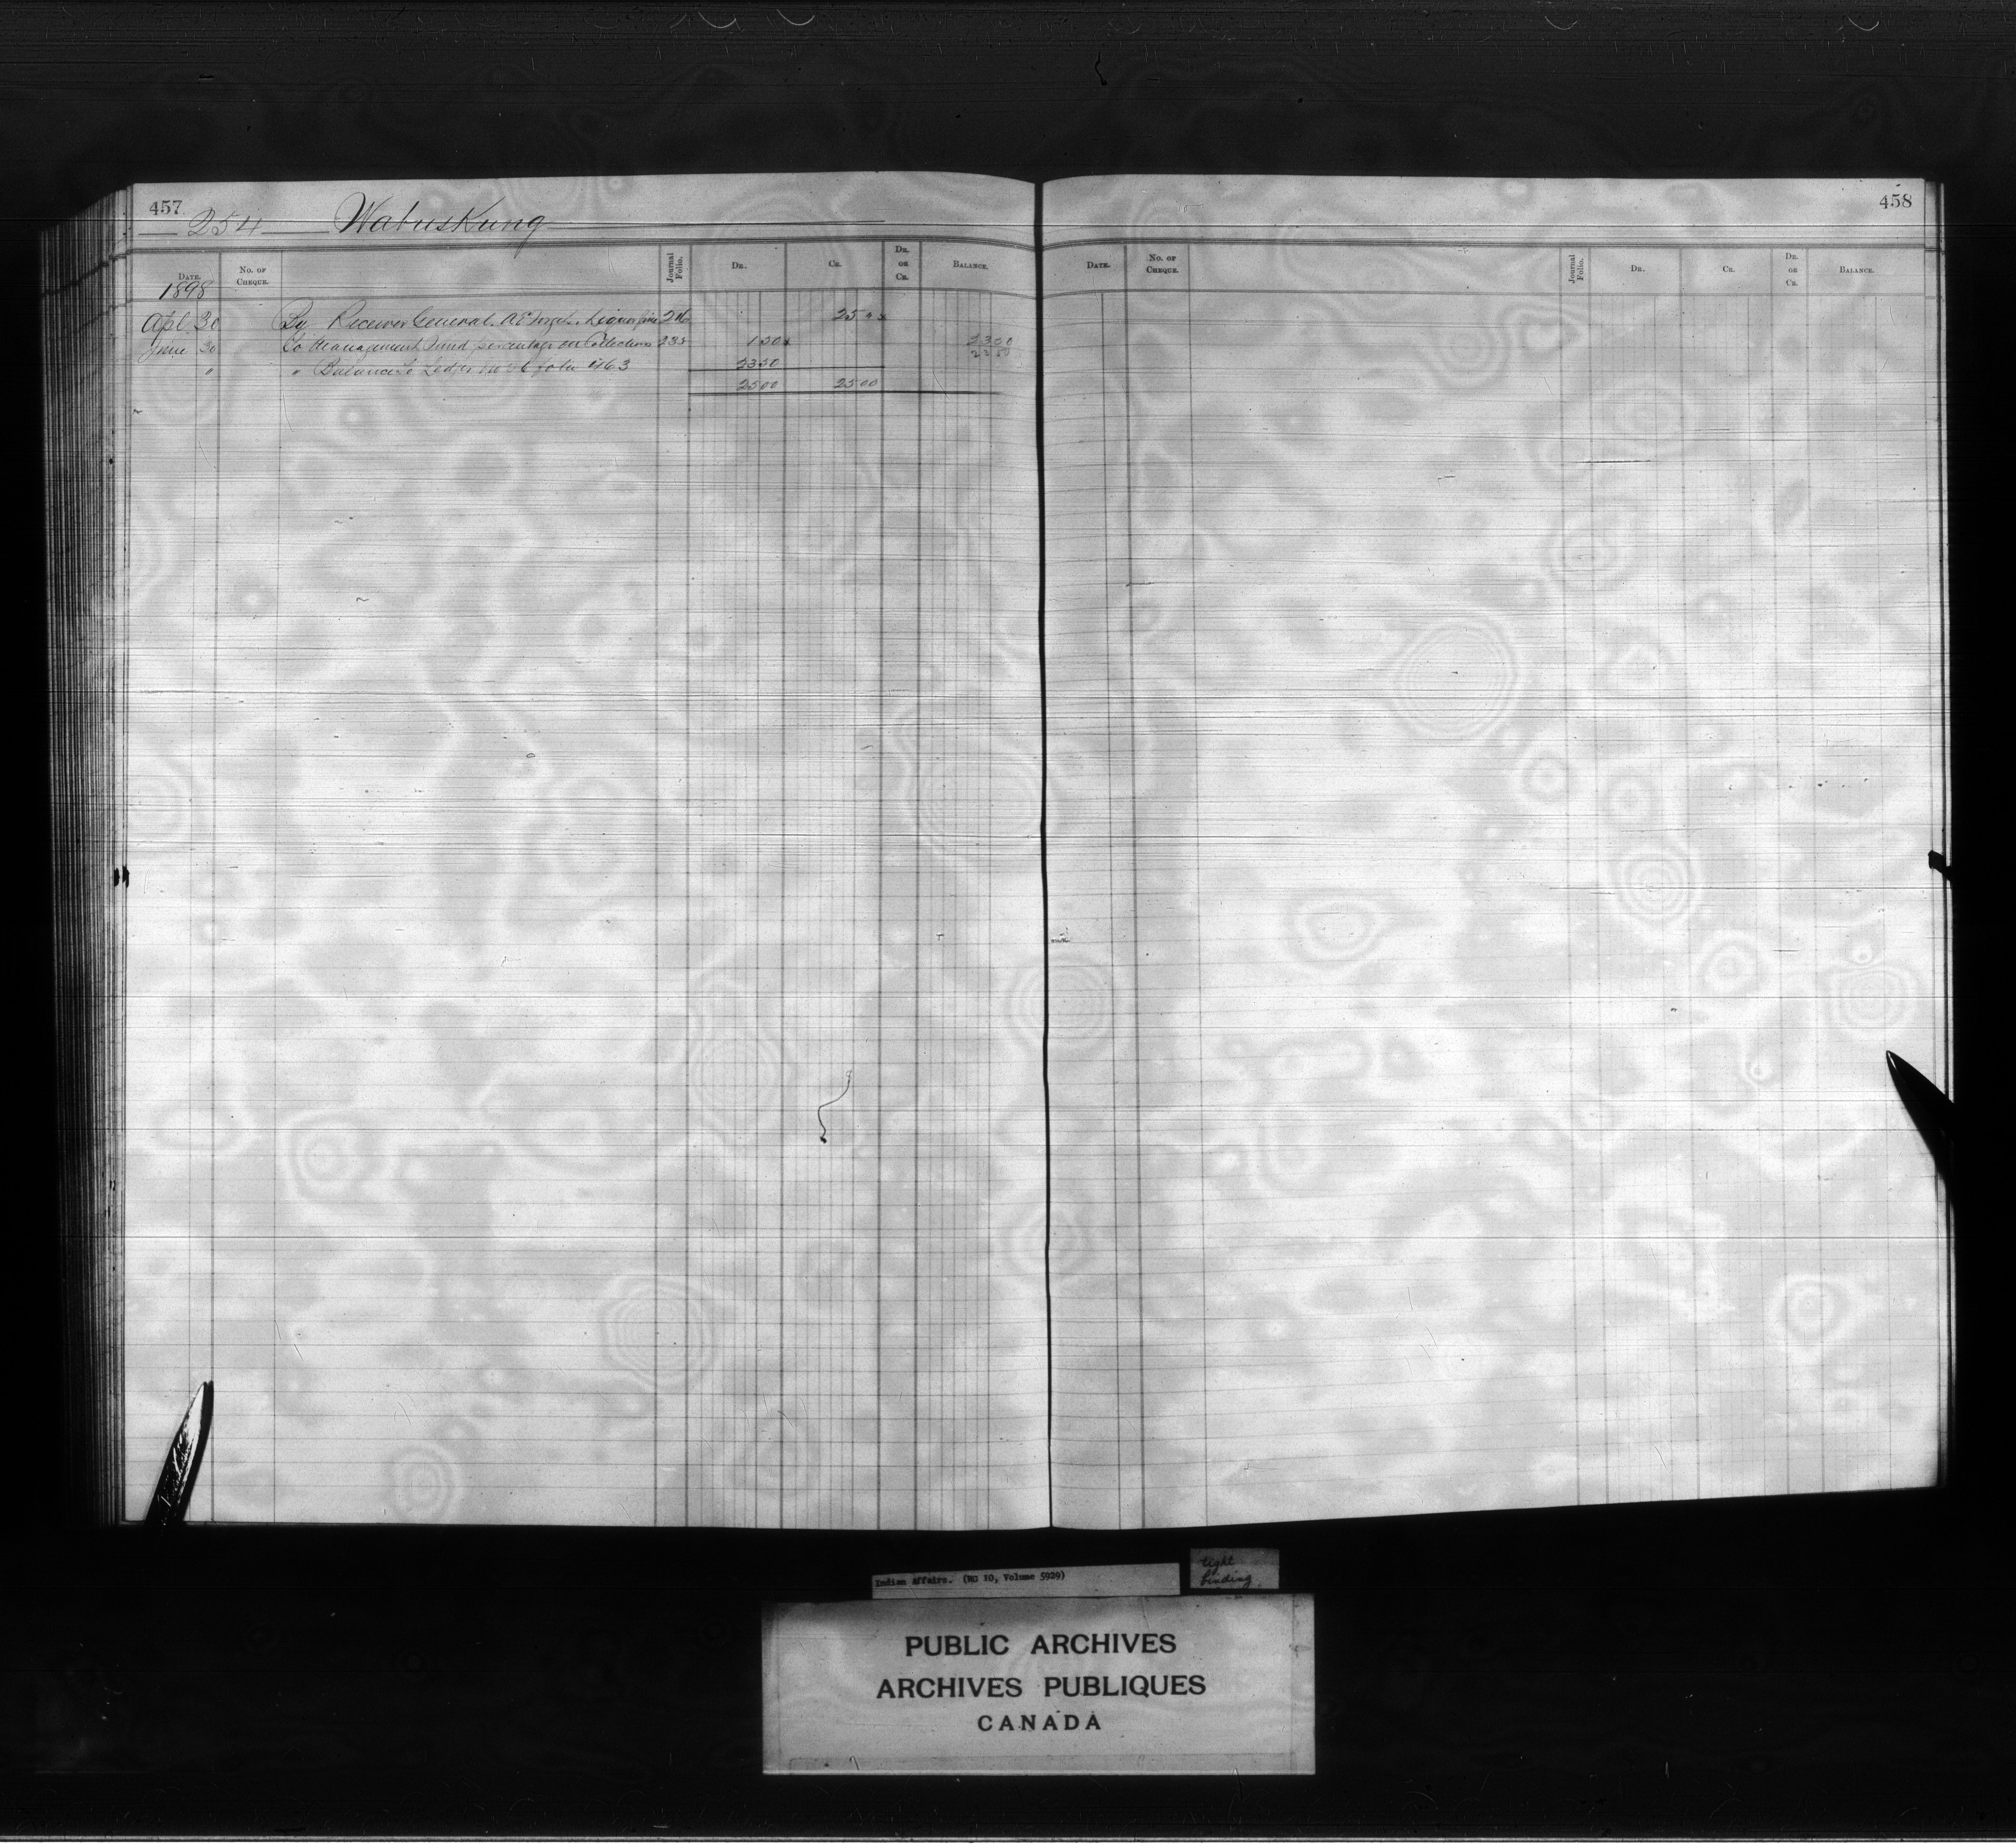 457
254 Wabuskung
DATE. No. OF CHEQUE. Journal Folio. DR. CR. DR. OR CR. BALANCE.
1898
Apl 30 By Receiver General. Liquor fine 216 25 " x
June 30 To Management Fund percentage on Collections 235 1 50 x 23 50
23 50
" " Balance to Ledger folio 463 23 50
25 00 25 00
458
DATE. No. OF CHEQUE. Journal Folio. DR. CR. DR. OR CR. BALANCE.
Indian Affairs. (RG 10, Volume 5929)
tight
binding
PUBLIC ARCHIVES
ARCHIVES PUBLIQUES
CANADA